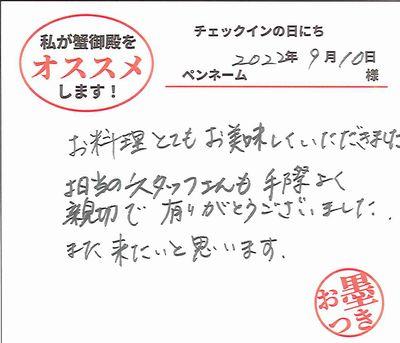 私が蟹御殿を
オススメ
します！
チェックインの日にち
2022年 9月10日
ペンネーム 様
お料理とてもお美味しくいただきました
担当のスタッフさんも手際よく
親切で有りがとうございました.
また来たいと思います.
お墨つき